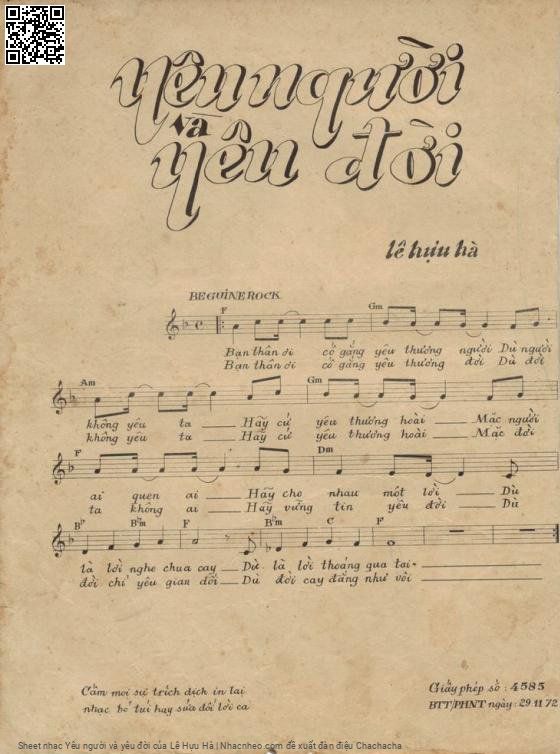 Yêu người
và
yêu đời
lê hựu hà
BEGUINE ROCK
F Gm
Bạn thân ơi cố gắng yêu thương người Dù người
Bạn thân ơi cố gắng yêu thương đời Dù đời
Am Gm
không yêu ta Hãy cứ yêu thương hoài Mặc người
không yêu ta Hãy cứ yêu thương hoài Mặc đời
F Dm
ai quen ai Hãy cho nhau một lời Dù
ta không ai Hãy vững tin yêu đời Dù
Bb Bbm F Bbm C F
là lời nghe chua cay Dù là lời thoáng qua tai
đời chỉ yêu gian dối Dù đời cay đắng như vôi
Cấm mọi sự trích dịch in lại
nhạc bổ túi hay sửa đổi lời ca
Giấy phép số : 4585
BTT/PHNT ngày : 29.11.72
Sheet nhạc Yêu người và yêu đời của Lê Hựu Hà | Nhacnheo.com đề xuất đàn điệu Chachacha